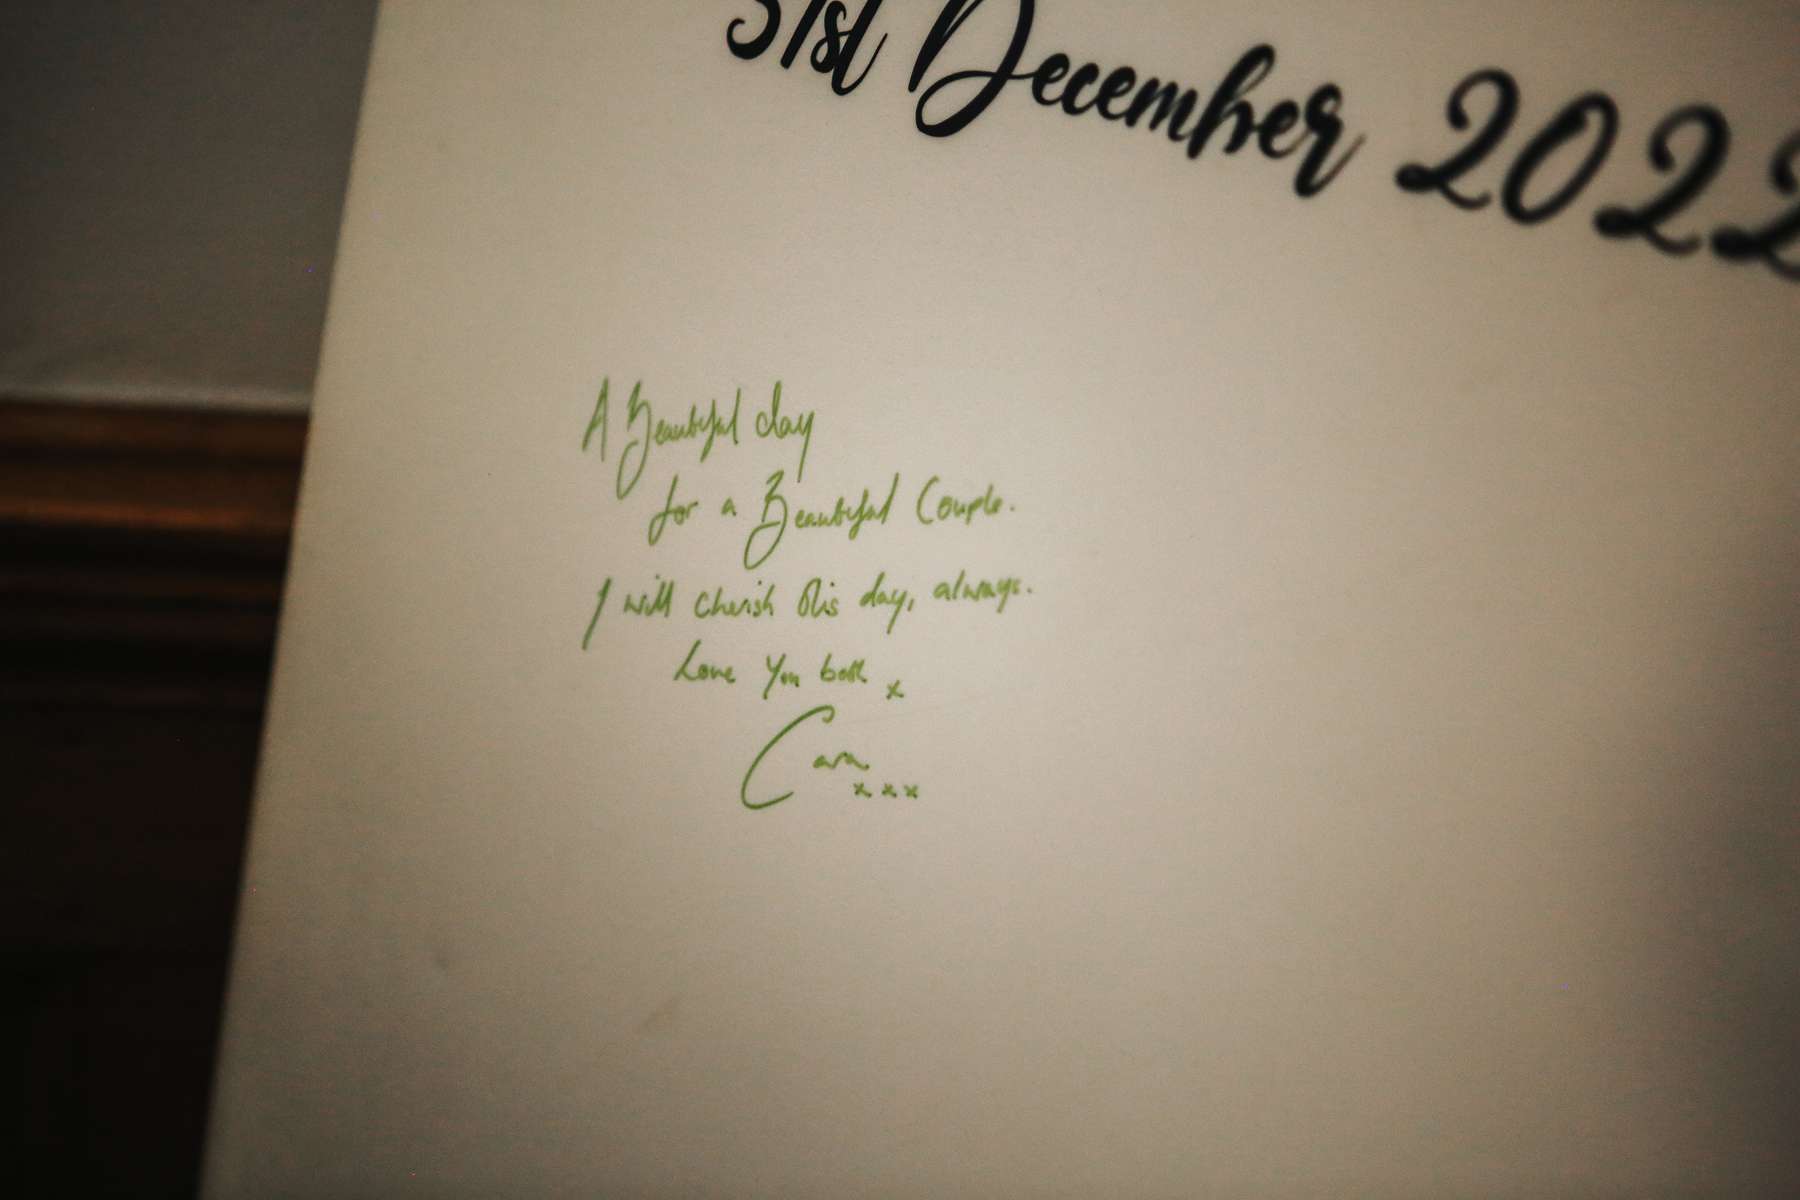 31st December 2022
A Beautiful day
for a Beautiful Couple.
I will cherish this day, always.
Love you both x
Cara
xxx